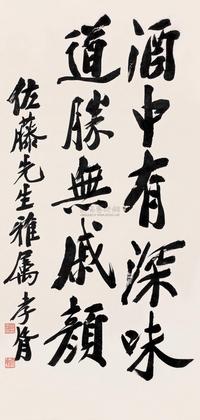 酒中有深味
道勝無戚顔
佐藤先生雅属 孝胥